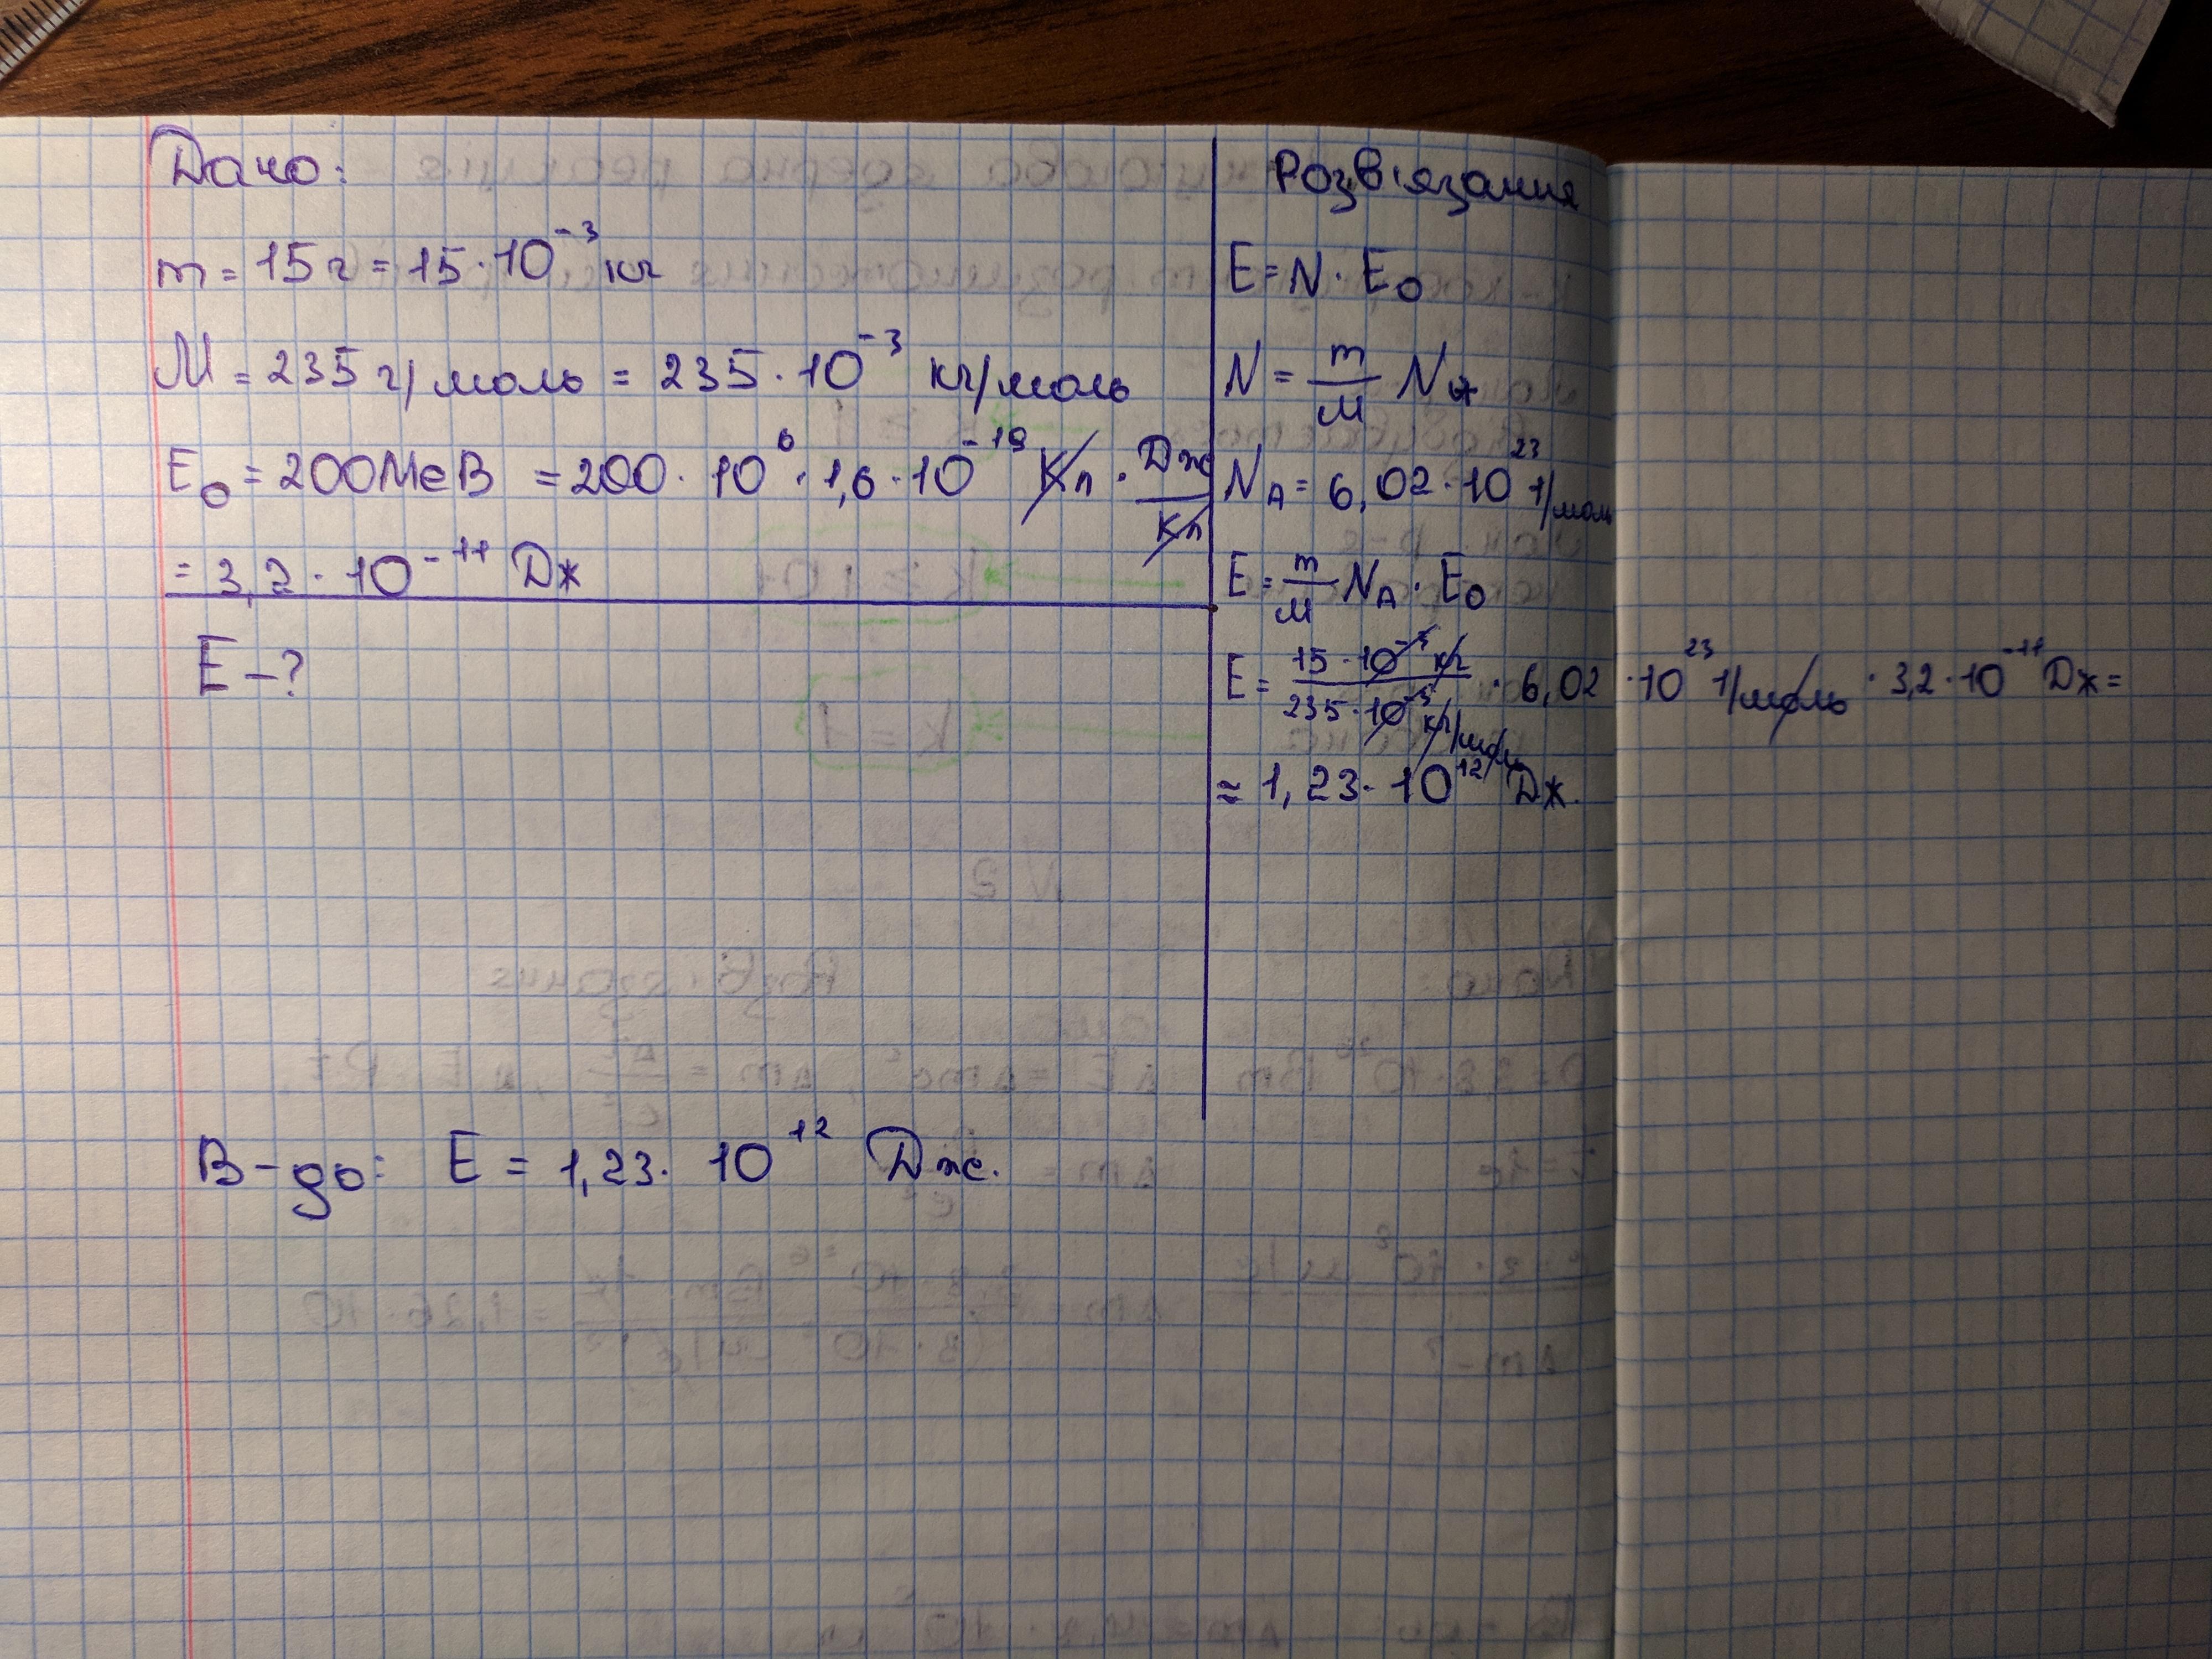 Дано:
m = 15 г = 15 · 10⁻³ кг
M = 235 г/моль = 235 · 10⁻³ кг/моль
E₀ = 200 МеВ = 200 · 10⁶ · 1,6 · 10⁻¹⁹ Кл · Дж/Кл
= 3,2 · 10⁻¹¹ Дж
E – ?
Розв'язання
E = N · E₀
N = m/M N_A
N_A = 6,02 · 10²³ 1/моль
E = m/M N_A · E₀
E = 15 · 10⁻³ кг / 235 · 10⁻³ кг/моль · 6,02 · 10²³ 1/моль · 3,2 · 10⁻¹¹ Дж =
≈ 1,23 · 10¹² Дж.
В-до: E = 1,23 · 10¹² Дж.